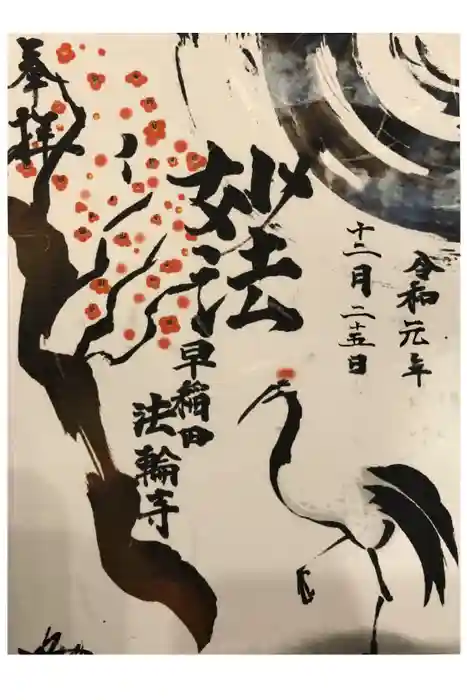 奉拝
令和元年
十二月二十五日
妙法
早稲田
法輪寺